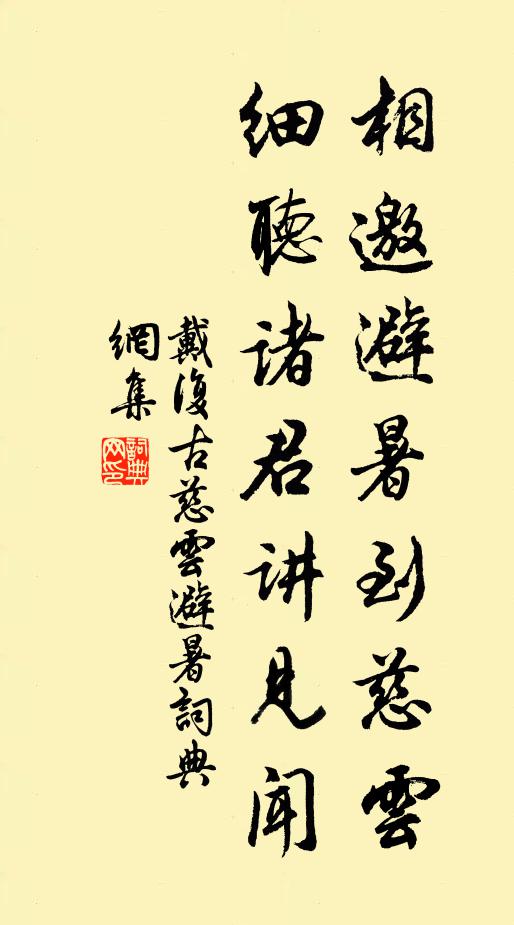 相邀避暑到慈雲
细聴诸君讲見闻
戴復古慈雲避暑詞典
網集
詞典
网印